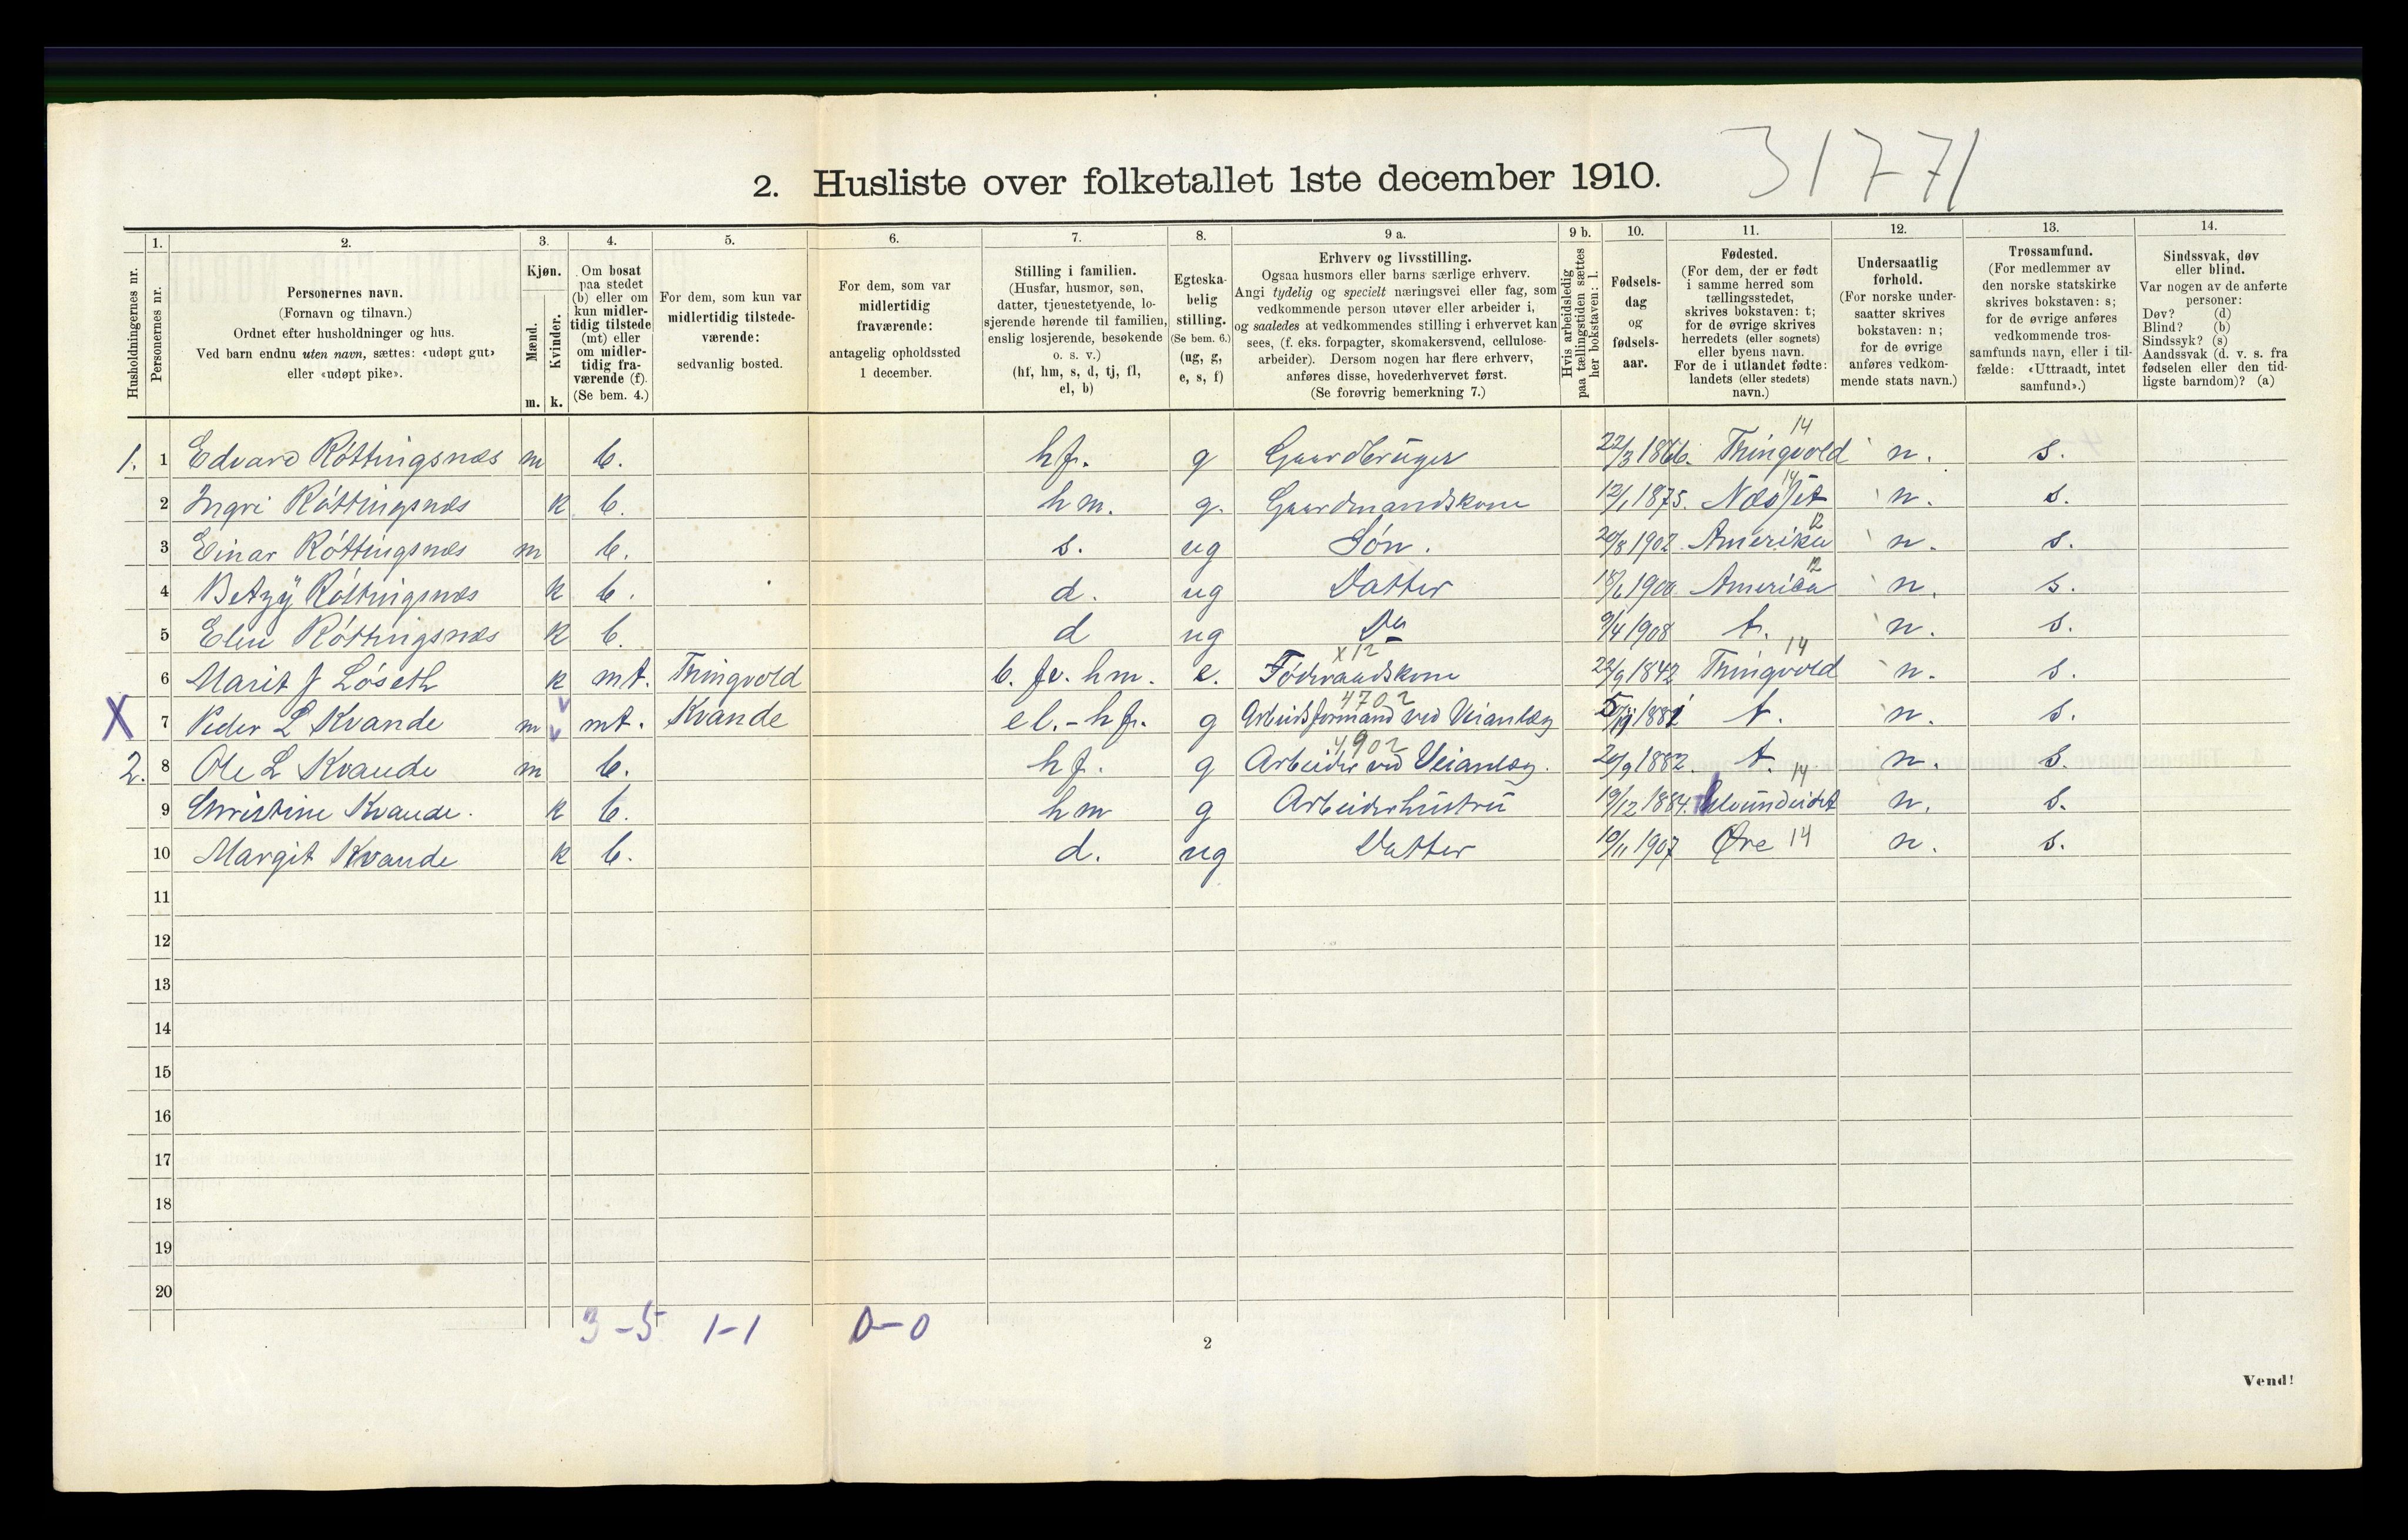 31771
2. Husliste over folketallet 1ste december 1910.
Husholdningernes nr.
1. Personernes nr.
2. Personernes navn.
(Fornavn og tilnavn.)
Ordnet efter husholdninger og hus.
Ved barn endnu uten navn, sættes: «udøpt gut»
eller «udøpt pike».
3. Kjøn.
Mænd. Kvinder.
m. k.
4. Om bosat
paa stedet
(b) eller om
kun midler-
tidig tilstede
(mt) eller
om midler-
tidig fra-
værende (f).
(Se bem. 4.)
5. For dem, som kun var
midlertidig tilstede-
værende:
sedvanlig bosted.
6. For dem, som var
midlertidig
fraværende:
antagelig opholdssted
1 december.
7. Stilling i familien.
(Husfar, husmor, søn,
datter, tjenestetyende, lo-
sjerende hørende til familien,
enslig losjerende, besøkende
o. s. v.)
(hf, hm, s, d, tj, fl,
el, b)
8. Egteska-
belig
stilling.
(Se bem. 6.)
(ug, g,
e, s, f)
9 a. Erhverv og livsstilling.
Ogsaa husmors eller barns særlige erhverv.
Angi tydelig og specielt næringsvei eller fag, som
vedkommende person utøver eller arbeider i,
og saaledes at vedkommendes stilling i erhvervet kan
sees, (f. eks. forpagter, skomakersvend, cellulose-
arbeider). Dersom nogen har flere erhverv,
anføres disse, hovederhvervet først.
(Se forøvrig bemerkning 7.)
9 b. Hvis arbeidsledig
paa tællingstiden sættes
her bokstaven: l.
10. Fødsels-
dag
og
fødsels-
aar.
11. Fødested.
(For dem, der er født
i samme herred som
tællingsstedet,
skrives bokstaven: t;
for de øvrige skrives
herredets (eller sognets)
eller byens navn.
For de i utlandet fødte:
landets (eller stedets)
navn.)
12. Undersaatlig
forhold.
(For norske under-
saatter skrives
bokstaven: n;
for de øvrige
anføres vedkom-
mende stats navn.)
13. Trossamfund.
(For medlemmer av
den norske statskirke
skrives bokstaven: s;
for de øvrige anføres
vedkommende tros-
samfunds navn, eller i til-
fælde: «Uttraadt, intet
samfund».)
14. Sindssvak, døv
eller blind.
Var nogen av de anførte
personer:
Døv? (d)
Blind? (b)
Sindssyk? (s)
Aandssvak (d. v. s. fra
fødselen eller den tid-
ligste barndom)? (a)
14
1. 1 Edvard Röttingsnæs m b. hf. g Gaardbruger 22/3 1866. Thingvold n. s.
14
2 Ingri Röttingsnæs k b. hm. g. Gaardmandskone 12/1 1875. Næsset n. s.
12
3 Einar Röttingsnæs m b. s. ug Søn. 20/8 1902 Amerika n. s.
12
4 Betzy Röttingsnæs k b. d. ug Datter Amerika n. s.
5 Elen Röttingsnæs k b. d ug Do 9/4 1908 t. n. s.
x12 14
6 Marit J Löseth k mt. Thingvold b. fv. hm. e. Föderaadskone 22/9 1842 Thingvold n. s.
4702
X 7 Peder L Kvande m mt. Kvande el.-hf. g Arbeidsformand ved Veianlæg 1881 t. n. s.
4902
2. 8 Ole L Kvande m b. hf. g Arbeider ved Veianlæg. 20/9 1882. t. n. s.
14
9 Christine Kvande. k b. hm g Arbeiderhustru 19/12 1884. n. s.
10 Margit Kvande k b. d. ug Datter 10/11 1907 Øre 14 n. s.
11
12
13
14
15
16
17
18
19
20
3-5 1-1 0-0
2
Vend!